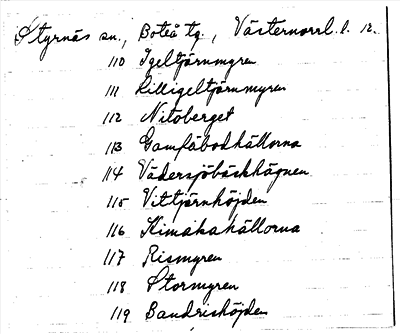 Styrnäs sn., Boteå tg., Västernorrl. l. 12.
110 Igeltjärnmyren
111 Lilligeltjärnmyren
112 Nitoberget
113 Gamfäbodhällorna
114 Vädersjöbäckhägnen
115 Vittjärnhöjden
116 Kimåkahällorna
117 Rismyren
118 Stormyren
119 Bandrishöjden